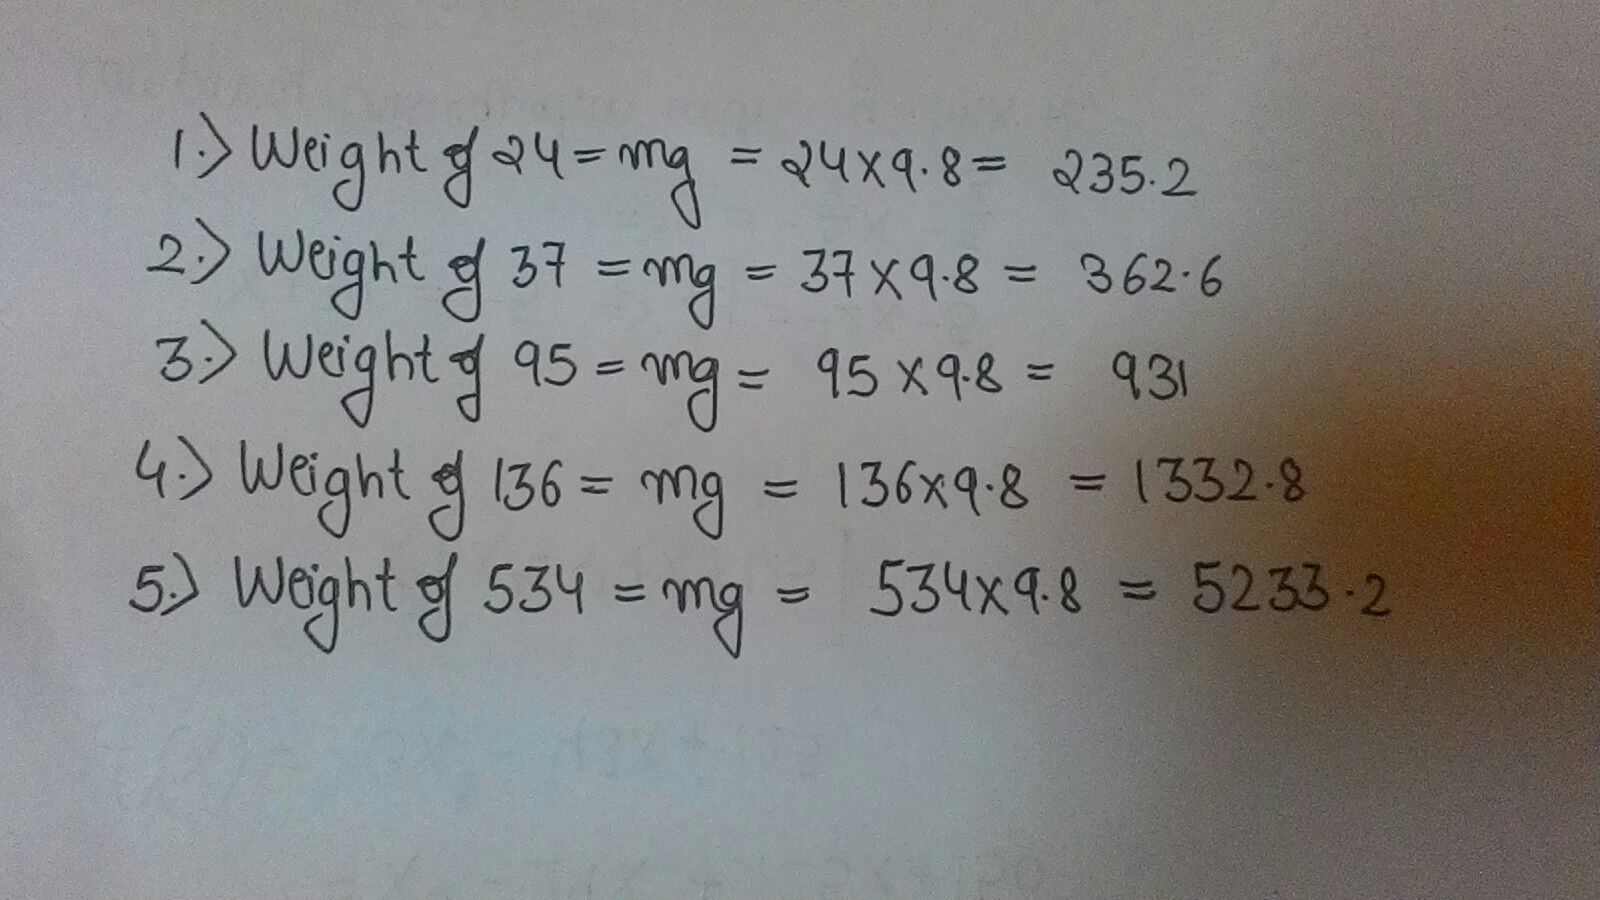 1.) Weight of 24 = mg = 24×9.8 = 235.2
2.) Weight of 37 = mg = 37×9.8 = 362.6
3.) Weight of 95 = mg = 95×9.8 = 931
4.) Weight of 136 = mg = 136×9.8 = 1332.8
5.) Weight of 534 = mg = 534×9.8 = 5233.2